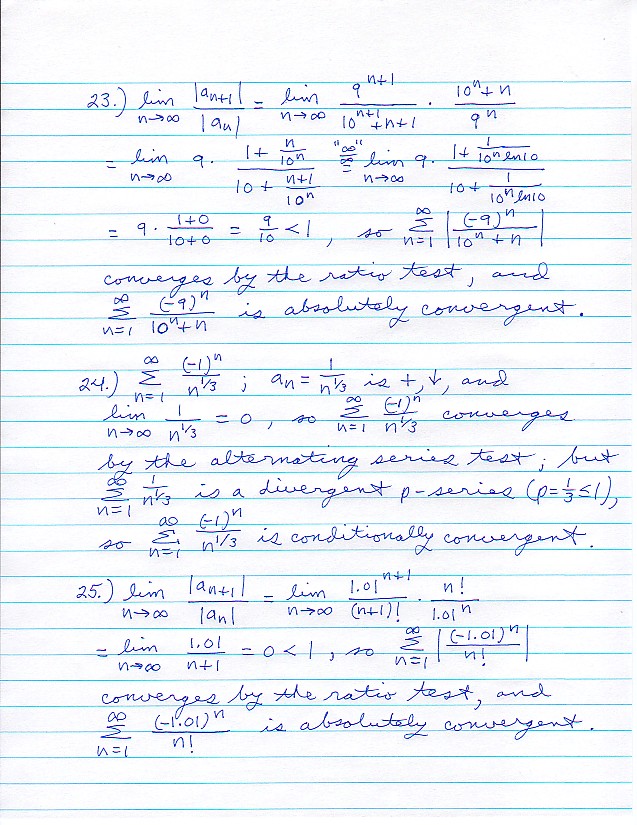 23.) lim n→∞ |a_{n+1}| / |a_n| = lim n→∞ 9^{n+1} / (10^{n+1} + n+1) · (10^n + n) / 9^n
= lim n→∞ 9 · (1 + n/10^n) / (10 + (n+1)/10^n) "∞/∞" = lim n→∞ 9 · (1 + 1/(10^n ln 10)) / (10 + 1/(10^n ln 10))
= 9 · (1+0)/(10+0) = 9/10 < 1, so ∞ Σ n=1 |(-9)^n / (10^n + n)|
converges by the ratio test, and
∞ Σ n=1 (-9)^n / (10^n + n) is absolutely convergent.
24.) ∞ Σ n=1 (-1)^n / n^{1/3} ; a_n = 1/n^{1/3} is +, ↓, and
lim n→∞ 1/n^{1/3} = 0, so ∞ Σ n=1 (-1)^n / n^{1/3} converges
by the alternating series test; but
∞ Σ n=1 1/n^{1/3} is a divergent p-series (p = 1/3 ≤ 1),
so ∞ Σ n=1 (-1)^n / n^{1/3} is conditionally convergent.
25.) lim n→∞ |a_{n+1}| / |a_n| = lim n→∞ 1.01^{n+1} / (n+1)! · n! / 1.01^n
= lim n→∞ 1.01 / (n+1) = 0 < 1, so ∞ Σ n=1 |(-1.01)^n / n!|
converges by the ratio test, and
∞ Σ n=1 (-1.01)^n / n! is absolutely convergent.